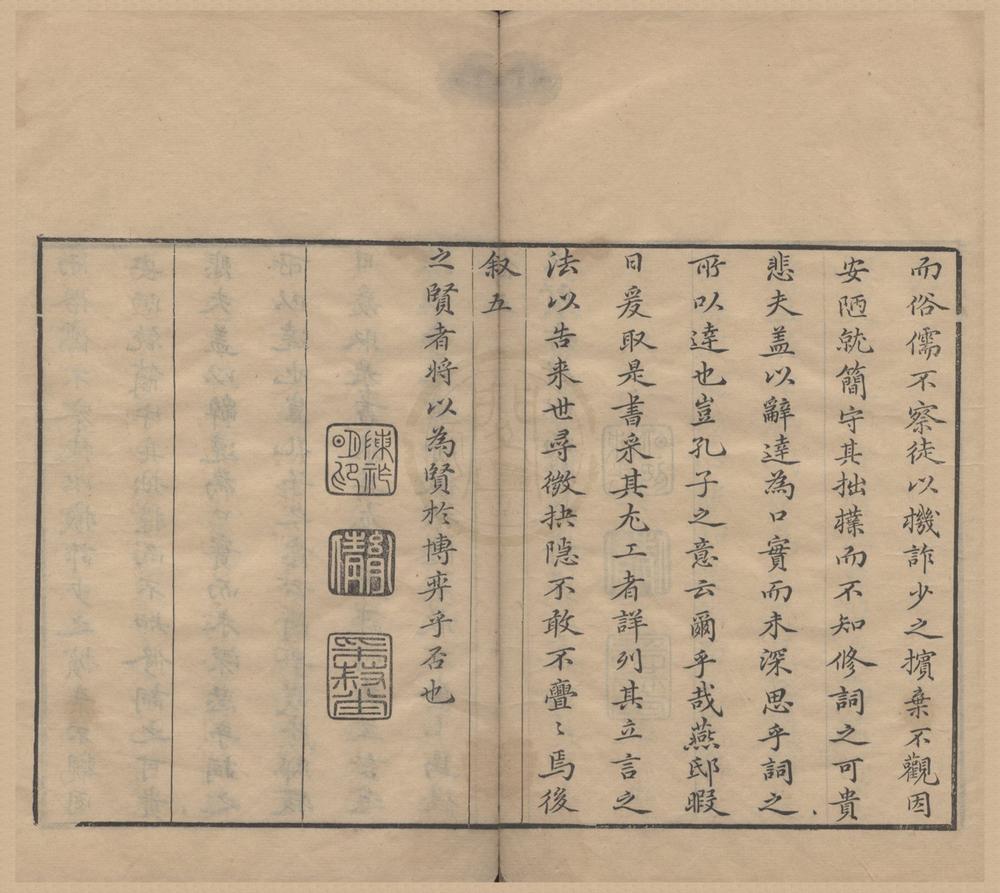 而俗儒不察徒以機詐少之擯棄不觀因
安陋就簡守其拙檏而不知修詞之可貴
悲夫盖以辭達為口實而未深思乎詞之
所以達也豈孔子之意云爾乎哉燕邸暇
日爰取是書采其尤工者詳列其立言之
法以告来世尋微抉隱不敢不亹〻焉後
叙五
之賢者将以為賢扵博弈乎否也